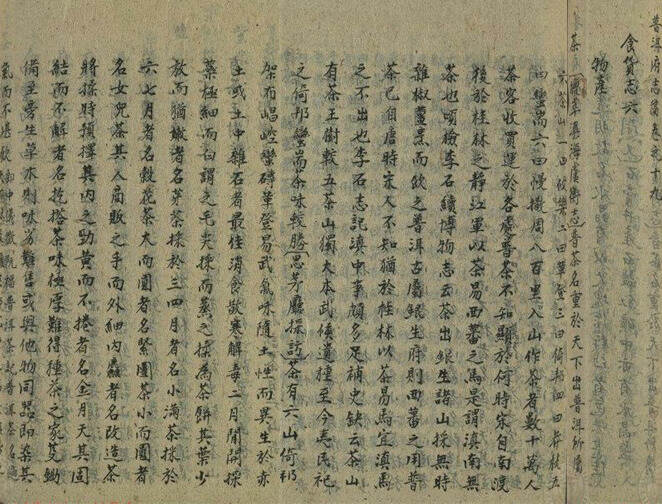 普洱府志卷之十九
食貨志六
物產
茶 檀萃滇海虞衡志普茶名重於天下出普洱所屬
六茶山一曰攸樂二曰革登三曰倚邦四曰莽枝五
曰蠻耑六曰慢撒周八百里入山作茶者數十萬人
茶客收買運於各處普茶不知顯於何時宋自南渡
後於桂林之靜江軍以茶易西蕃之馬是謂滇南無
茶也頃檢李石續博物志云茶出銀生諸山採無時
雜椒薑烹而飲之普洱古屬銀生府則西蕃之用普
茶已自唐時宋人不知猶於桂林以茶易馬宜滇馬
之不出也李石志記滇中事頗多足補史缺云茶山
有茶王樹較五茶山獨大本武侯遺種至今夷民祀
之倚邦蠻耑茶味較勝 思茅廳採訪茶有六山倚邦
架布嶍崆蠻磚革登易武氣味隨土性而異生於赤
土或土中雜石者最佳消食散寒解毒二月間開採
蕊極細而白謂之毛尖採而蒸之揉為茶餅其葉少
放而猶嫩者名芽茶採於三四月者名小滿茶採於
六七月者名穀花茶大而圓者名緊團茶小而圓者
名女兒茶其入商販之手而外細內麤者名改造茶
將揉時預擇其內之勁黃而不捲者名金月天其固
結而不解者名扢搭茶味極厚難得種茶之家芟鋤
備至旁生草木則味劣難售或與他物同器即染其
氣而不堪飲